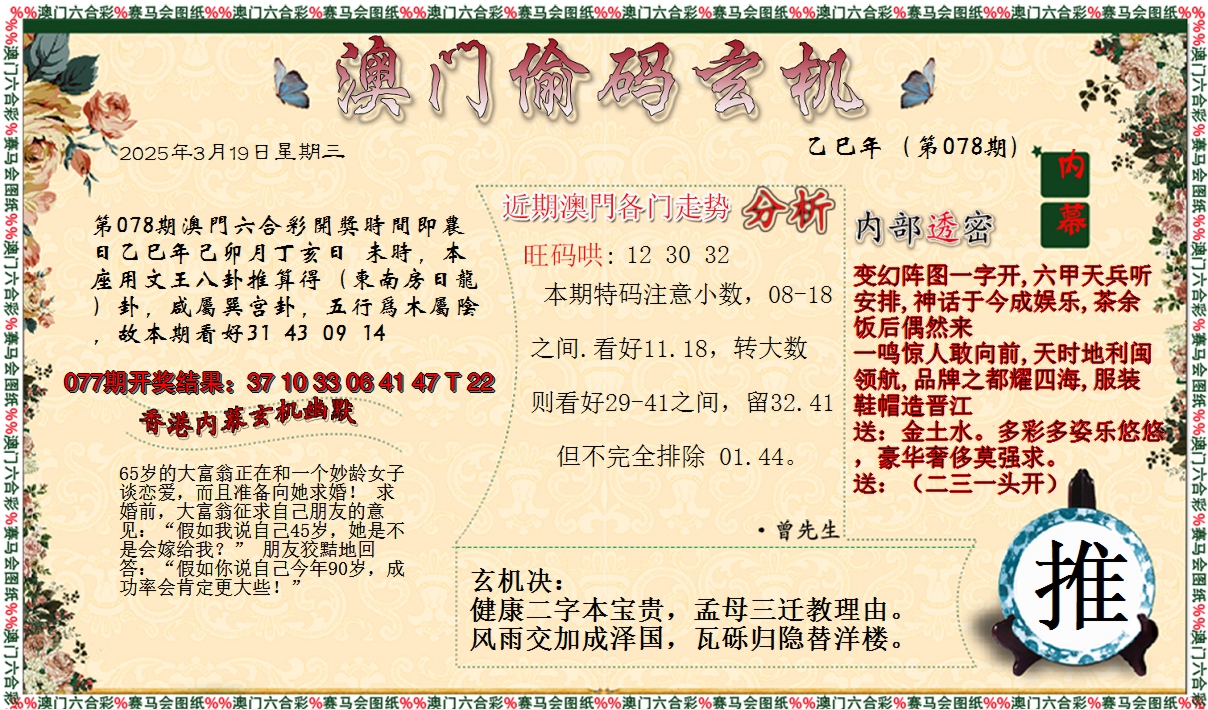 %%澳门六合彩%赛马会图纸%%澳门六合彩%赛马会图纸%%澳门六合彩%赛马会图纸%%澳门六合彩%赛马会图纸%%澳门六合彩%赛马会图纸%%澳门六合彩%赛马会图纸%%
澳门偷码玄机
2025年3月19日星期三
乙巳年（第078期）
第078期澳門六合彩開獎時間即農
日乙巳年己卯月丁亥日 未時，本
座用文王八卦推算得（東南房日龍
）卦，咸屬巽宫卦，五行爲木屬陰
，故本期看好31 43 09 14
077期开奖结果：37 10 33 06 41 47 T 22
香港内幕玄机幽默
65岁的大富翁正在和一个妙龄女子
谈恋爱，而且准备向她求婚！ 求
婚前，大富翁征求自己朋友的意
见：“假如我说自己45岁，她是不
是会嫁给我？” 朋友狡黠地回
答：“假如你说自己今年90岁，成
功率会肯定更大些！”
近期澳門各门走势 分析
旺码哄: 12 30 32
本期特码注意小数，08-18
之间.看好11.18，转大数
则看好29-41之间，留32.41
但不完全排除 01.44。
·曾先生
内幕
内部透密
变幻阵图一字开,六甲天兵听
安排,神话于今成娱乐,茶余
饭后偶然来
一鸣惊人敢向前,天时地利闽
领航,品牌之都耀四海,服装
鞋帽造晋江
送：金土水。多彩多姿乐悠悠
，豪华奢侈莫强求。
送：（二三一头开）
玄机决：
健康二字本宝贵，孟母三迁教理由。
风雨交加成泽国，瓦砾归隐替洋楼。
推
%%澳门六合彩%赛马会图纸%%澳门六合彩%赛马会图纸%%澳门六合彩%赛马会图纸%%澳门六合彩%赛马会图纸%%澳门六合彩%赛马会图纸%%澳门六合彩%赛马会图纸%%